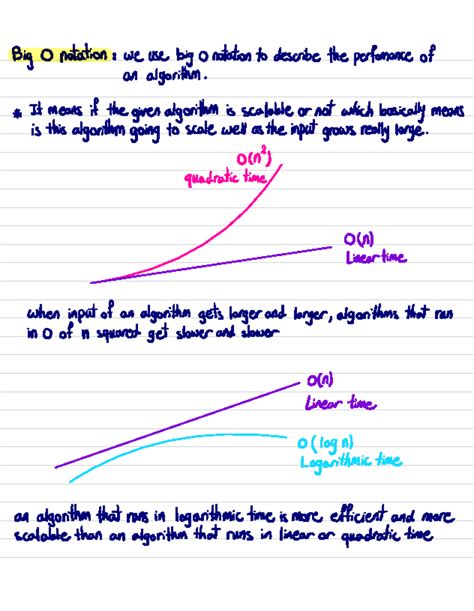 Big O notation: we use big O notation to describe the perfomance of
an algorithm.
* It means if the given algorithm is scalable or not which basically means
is this algorithm going to scale well as the input grows really large.
O(n²)
quadratic time
O(n)
Linear time
when input of an algorithm gets larger and larger, algorithms that run
in O of n squared get slower and slower
O(n)
Linear time
O(log n)
Logarithmic time
an algorithm that runs in logarithmic time is more efficient and more
scalable than an algorithm that runs in linear or quadratic time